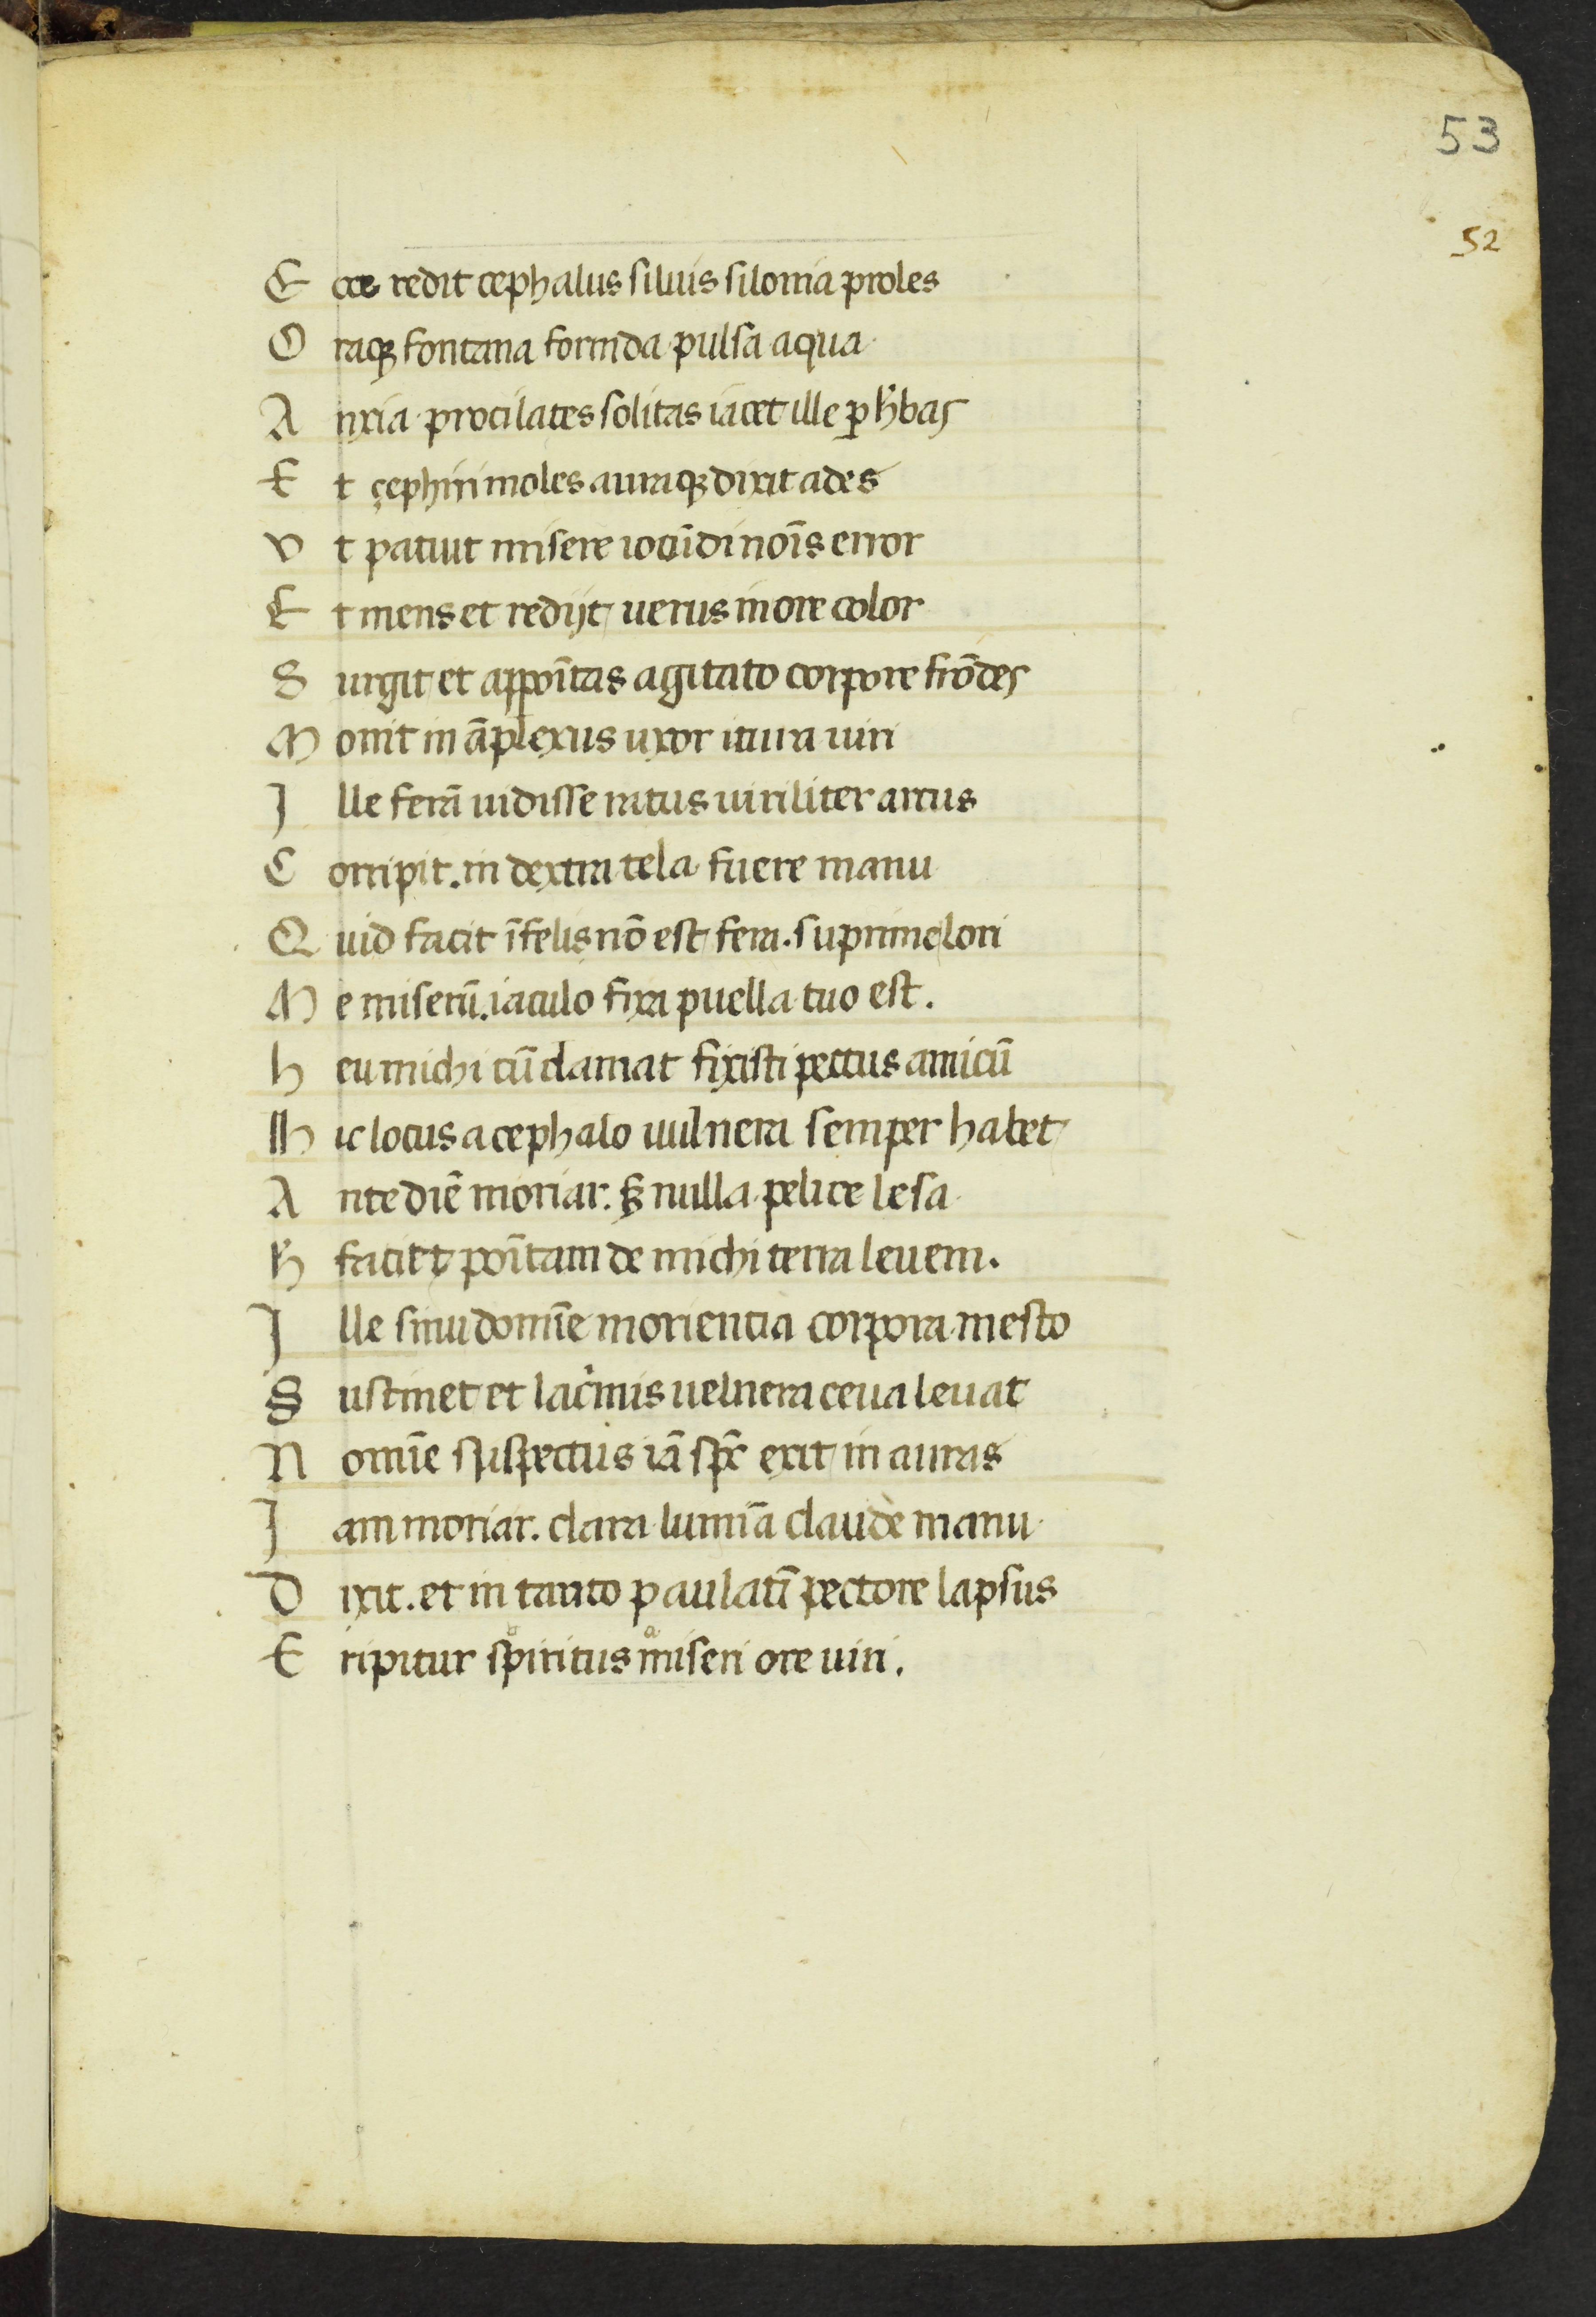 53
52
E cce redit cephalus siluis silonia proles
O raqꝫ fontana formda pulsa aqua
A nxia procilates solitas iacet ille ꝑ h̾bas
E t çephiri moles auraqꝫ dixit ades
V t patuit misere iocūdi noīs error
E t mens et redijt uerus in ore color
S urgit et appoītas agitato corpore frōdes
M ouit in āplexus uxor itura uiri
J lle ferā uidisse ratus uiriliter arcus
C orripit. in dextra tela fuere manu
Q uid facit īfelis nō est fera. suprime lori
M e miserū. iaculo fixa puella tuo est.
h eu michi cū clamat fixisti pectus amicū
Hic locus a cephalo uulnera semper habet
A nte diē moriar. sꝫ nulla pelice lesa
h̾ faciet poītam de michi terra leuem.
J lle sinu domīe morientia corpora mesto
S ustinet et lac̾mis uelnera ceua leuat
N omīe suspectus iā spc̄ exit in auras
J am moriar. clara lumīa claude manu
D ixit. et in tanto paulatī pectore lapsus
E ripitur spiritus miseri ore uiri.